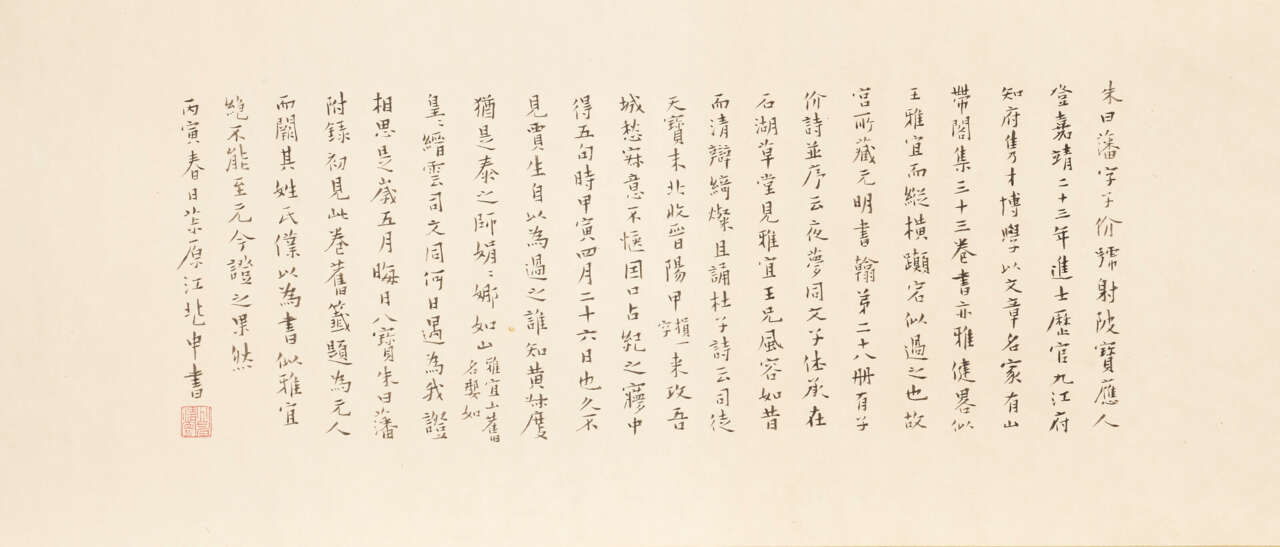 朱曰藩字子价號射陂寶應人
登嘉靖二十三年進士歷官九江府
知府雋才博學以文章名家有山
帶閣集三十三卷書亦雅健畧似
王雅宜而縱橫躑宕似過之也故
宮所藏元明書翰第二十八冊有子
价詩並序云夜夢同文子休承在
石湖草堂見雅宜王兄風容如昔
而清辯綺燦且誦杜子詩云司徒
天寶末北收晉陽甲損一字一來攻吾
城愁寐意不愜因口占紀之寤中
得五句時甲寅四月二十六日也久不
見賈生自以為過之誰知黃叔度
猶是泰之師娟〻娜如山雅宜山舊名娜如
皇〻縉雲司文同何日遇為我證
相思是歲五月晦日八寶朱曰藩
附錄初見此卷舊籤題為元人
而闕其姓氏僕以為書似雅宜
絕不能至元今證之果然
丙寅春日茶原江兆申書